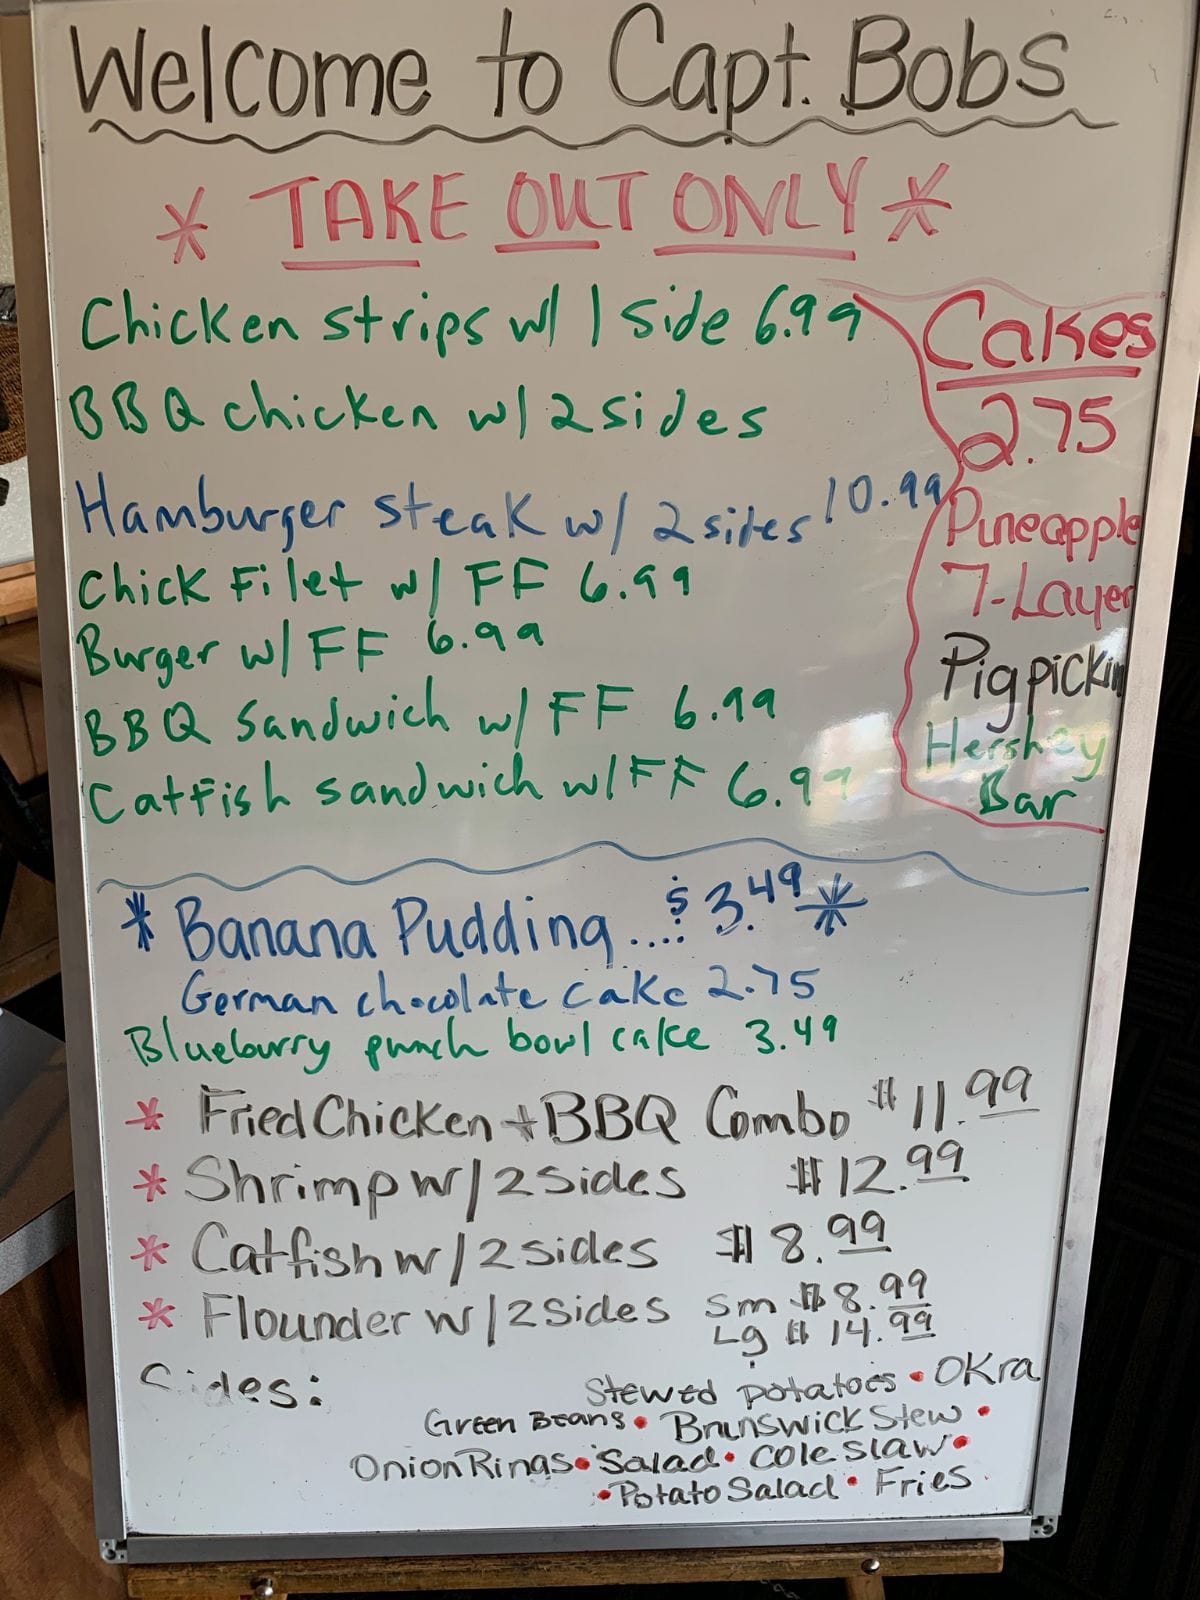 Welcome to Capt. Bobs
* TAKE OUT ONLY *
Chicken strips w/ 1 side 6.99
BBQ chicken w/ 2 sides
Hamburger steak w/ 2 sides 10.99
Chick Filet w/ FF 6.99
Burger w/ FF 6.99
BBQ Sandwich w/ FF 6.99
Catfish sandwich w/ FF 6.99
Cakes
2.75
Pineapple
7-Layer
Pigpickin
Hershey
Bar
* Banana Pudding .... $3.49 *
German chocolate cake 2.75
Blueburry punch bowl cake 3.49
* Fried Chicken + BBQ Combo $11.99
* Shrimp w/ 2 sides $12.99
* Catfish w/ 2 sides $8.99
* Flounder w/ 2 Sides Sm $8.99
Lg $14.99
Sides:
Stewed potatoes • Okra
Green Beans • Brunswick Stew •
Onion Rings • Salad • Cole slaw •
• Potato Salad • Fries